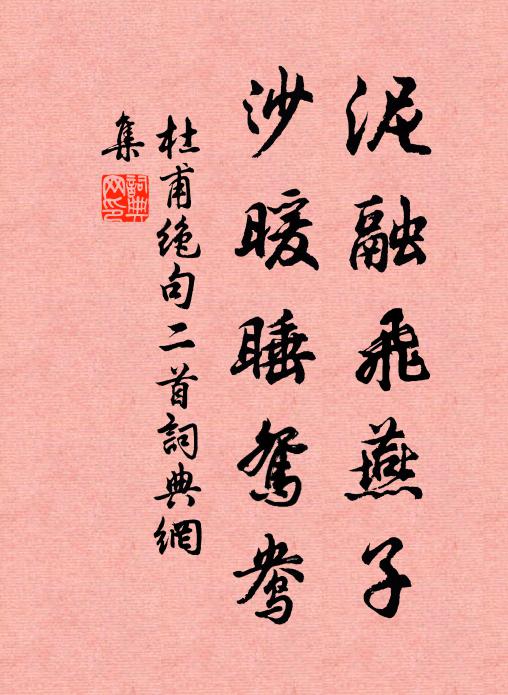 泥融飛燕子
沙暖睡鴛鴦
杜甫絶句二首詞典網
集
詞典網印